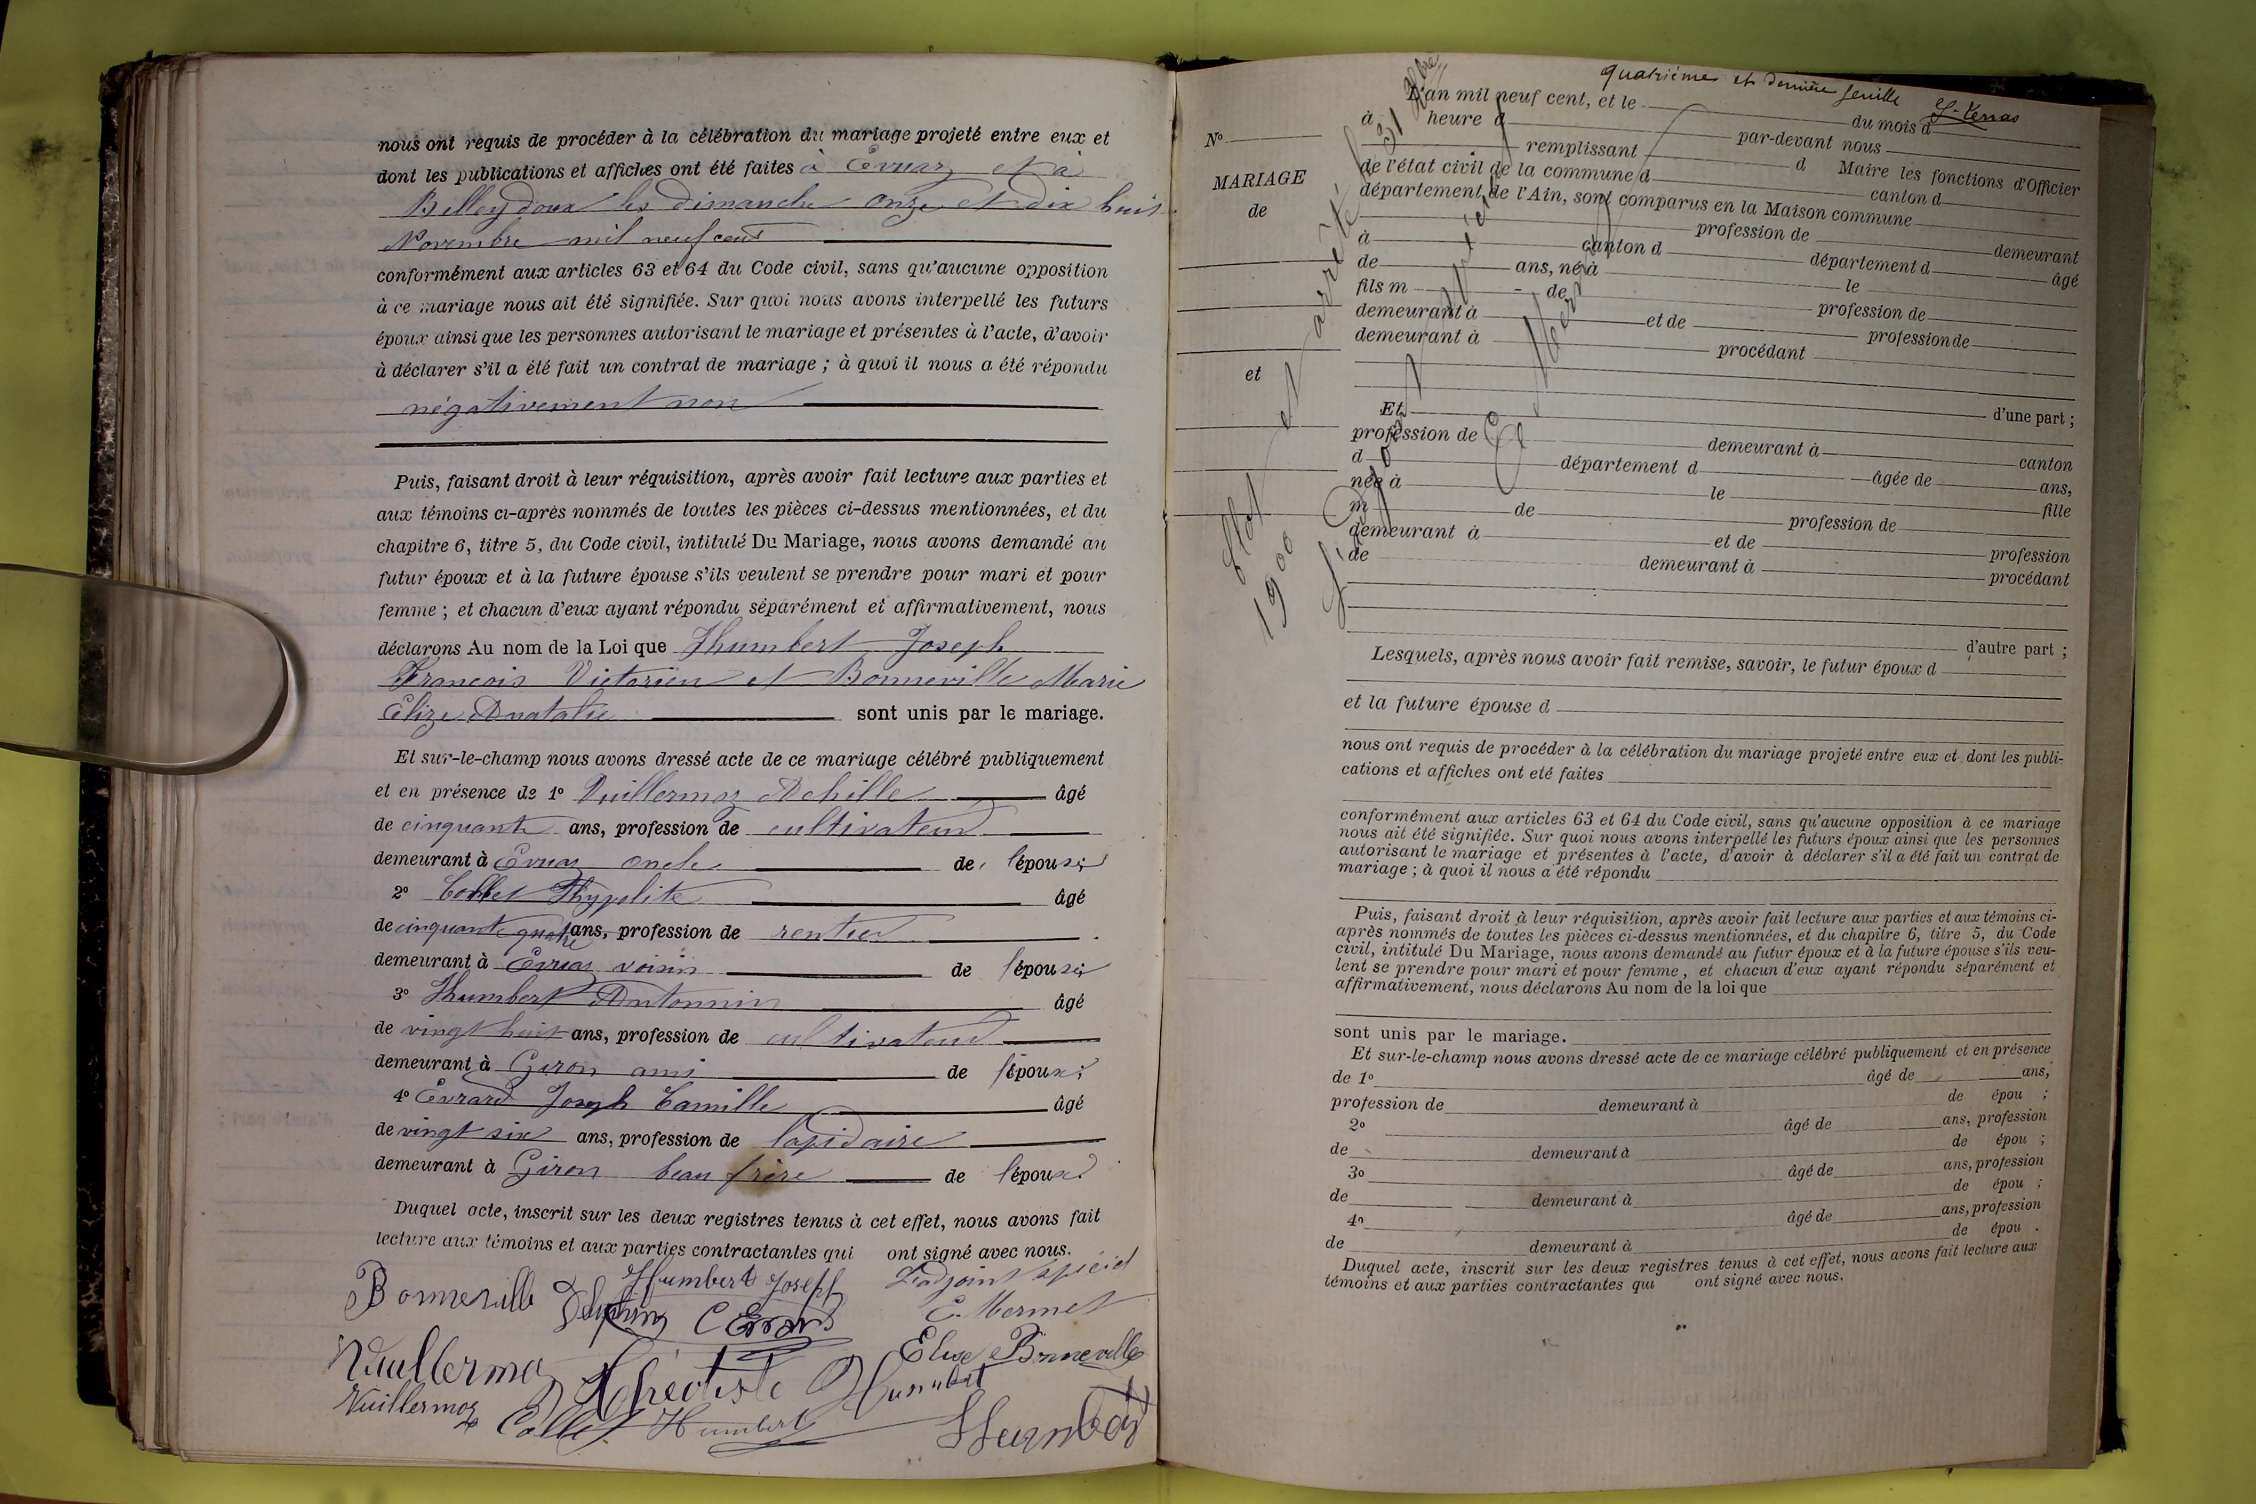 nous ont requis de procéder à la célébration du mariage projeté entre eux et
dont les publications et affiches ont été faites à Evuaz et à
Belleydoux les dimanche onze et dix huit
Novembre mil neuf cent
conformément aux articles 63 et 64 du Code civil, sans qu'aucune opposition
à ce mariage nous ait été signifiée. Sur quoi nous avons interpellé les futurs
époux ainsi que les personnes autorisant le mariage et présentes à l'acte, d'avoir
à déclarer s'il a été fait un contrat de mariage ; à quoi il nous a été répondu
négativement non
Puis, faisant droit à leur réquisition, après avoir fait lecture aux parties et
aux témoins ci-après nommés de toutes les pièces ci-dessus mentionnées, et du
chapitre 6, titre 5, du Code civil, intitulé Du Mariage, nous avons demandé au
futur époux et à la future épouse s'ils veulent se prendre pour mari et pour
femme ; et chacun d'eux ayant répondu séparément et affirmativement, nous
déclarons Au nom de la Loi que Humbert Joseph
François Victorien et Bonneville Marie
Elize Anatalie sont unis par le mariage.
Et sur-le-champ nous avons dressé acte de ce mariage célébré publiquement
et en présence de 1º Vuillermoz Achille âgé
de cinquante ans, profession de cultivateur
demeurant à Evuaz oncle de l'épouse;
2º Collet Hypolite âgé
de cinquante quatre ans, profession de rentier
demeurant à Evuaz voisin de l'épouse;
3º Humbert Antonnin âgé
de vingt huit ans, profession de cultivateur
demeurant à Giron ami de l'époux;
4º Evrard Joseph Camille âgé
de vingt six ans, profession de lapidaire
demeurant à Giron beau frère de l'époux.
Duquel acte, inscrit sur les deux registres tenus à cet effet, nous avons fait
lecture aux témoins et aux parties contractantes qui ont signé avec nous.
Bonneville Humbert Joseph L'adjoint spécial
Delphin C Evrard E. Mermet
Elise Bonneville
Vuillermoz Théotiste Humbert
Vuillermoz Collet Humbert Humbert
quatrième et dernière feuille
Nº
MARIAGE
de
et
Clos et arrêté le 31 Xbre
1900
L'adjoint spécial
E Mermet
L'an mil neuf cent, et le du mois d
à heure d par-devant nous
remplissant d Maire les fonctions d'Officier
de l'état civil de la commune d canton d
département de l'Ain, sont comparus en la Maison commune
profession de demeurant
à canton d département d âgé
de ans, né à le
fils m de profession de
demeurant à et de profession de
demeurant à procédant
d'une part ;
Et
profession de demeurant à canton
d département d âgée de ans,
née à le fille
m de profession de
demeurant à et de profession
de demeurant à procédant
d'autre part ;
Lesquels, après nous avoir fait remise, savoir, le futur époux d
et la future épouse d
nous ont requis de procéder à la célébration du mariage projeté entre eux et dont les publi-
cations et affiches ont eté faites
conformément aux articles 63 et 64 du Code civil, sans qu'aucune opposition à ce mariage
nous ait été signifiée. Sur quoi nous avons interpellé les futurs époux ainsi que les personnes
autorisant le mariage et présentes à l'acte, d'avoir à déclarer s'il a été fait un contrat de
mariage ; à quoi il nous a été répondu
Puis, faisant droit à leur réquisition, après avoir fait lecture aux parties et aux témoins ci-
après nommés de toutes les pièces ci-dessus mentionnées, et du chapitre 6, titre 5, du Code
civil, intitulé Du Mariage, nous avons demandé au futur époux et à la future épouse s'ils veu-
lent se prendre pour mari et pour femme, et chacun d'eux ayant répondu séparément et
affirmativement, nous déclarons Au nom de la loi que
sont unis par le mariage.
Et sur-le-champ nous avons dressé acte de ce mariage célébré publiquement et en présence
de 1º âgé de ans,
profession de demeurant à de épou ;
2º âgé de ans, profession
de demeurant à de épou ;
3º âgé de ans, profession
de demeurant à de épou ;
4º âgé de ans, profession
de demeurant à de épou .
Duquel acte, inscrit sur les deux registres tenus à cet effet, nous avons fait lecture aux
témoins et aux parties contractantes qui ont signé avec nous.